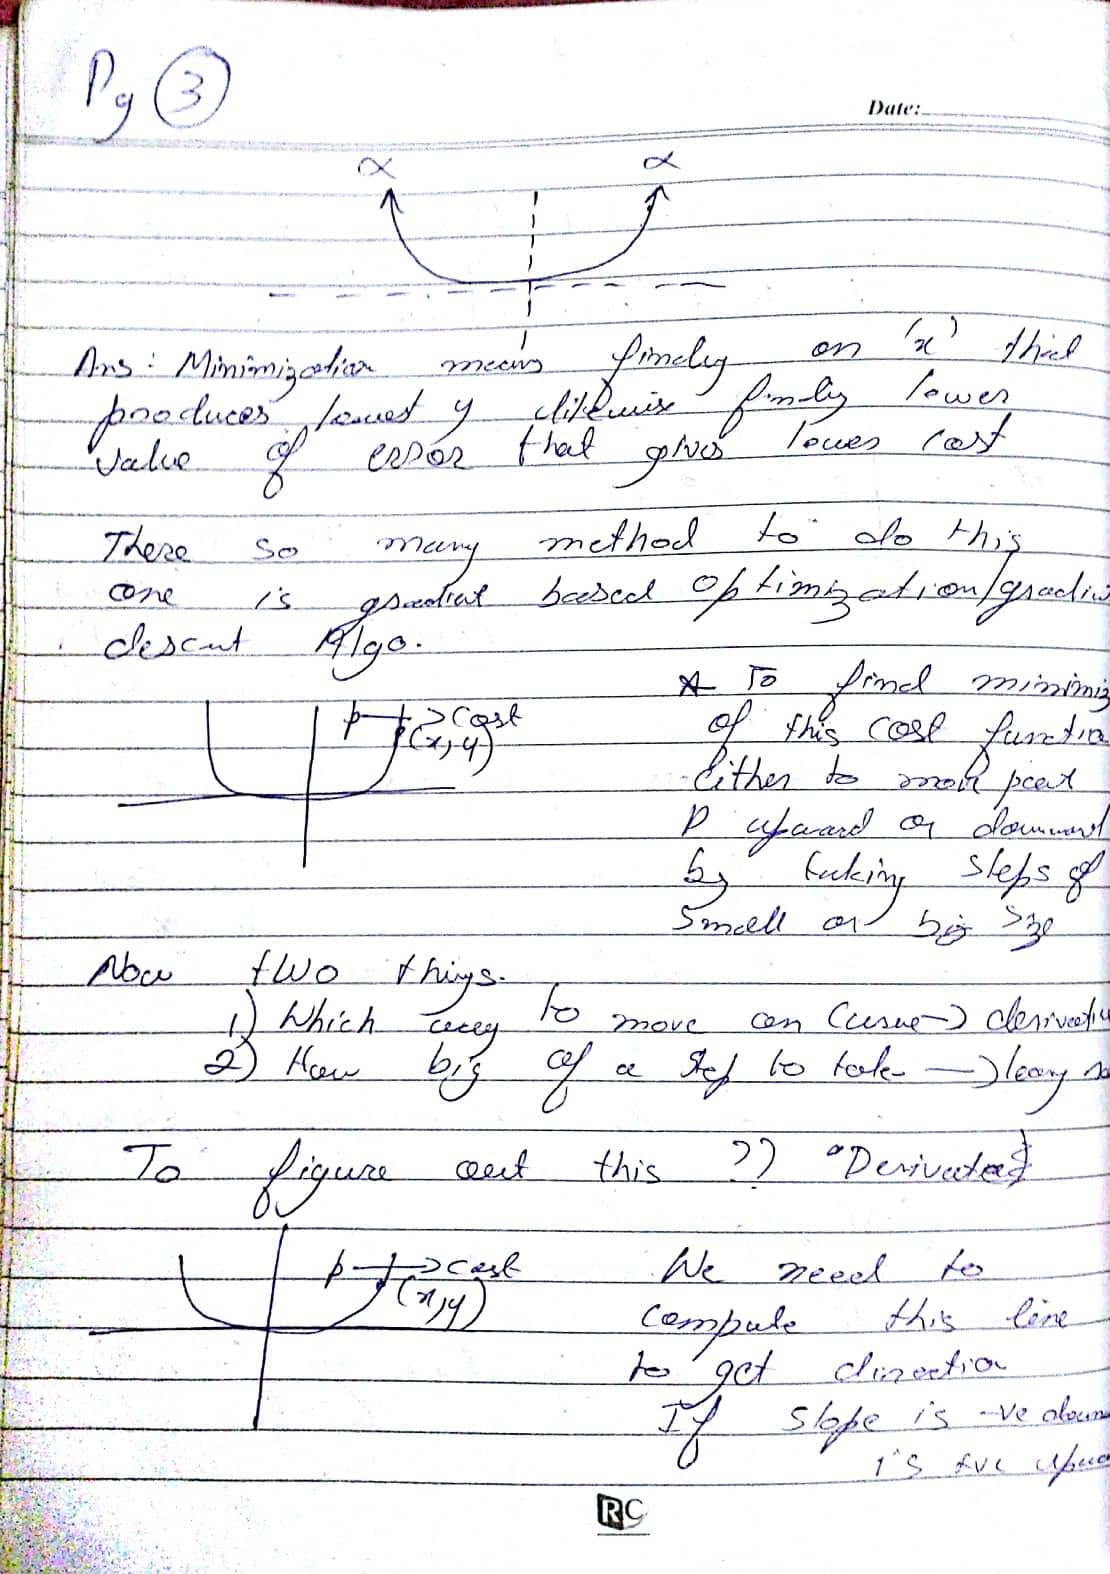 Pg 3
Date:
∝ ∝
Ans: Minimization means finding an 'x' that
produces lowest y likewise finding lower
value of error that gives lower cost
There so many method to do this
one is gradient based optimization/gradie
descent Algo.
p → cost
(x,y)
To find minimiz
of this cost functio
either to move point
P upward or downward
by taking steps of
small or big size
Now two things.
1) Which way to move on curve → derivativ
2) How big of a step to take →
To figure out this ??
p → cost
(x,y)
We need to
compute this line
to get direction
If slope is -ve down
is +ve upwa
RC